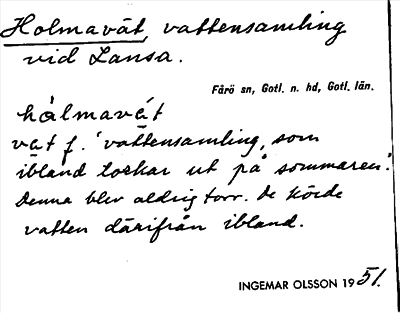 Holmavát, vattensamling
vid Lansa.
Fårö sn, Gotl. n. hd, Gotl. län.
hålmavát
vat f. 'vattensamling, som
ibland torkar ut på sommaren'.
Denna blev aldrig torr. De körde
vatten därifrån ibland.
INGEMAR OLSSON 1951.